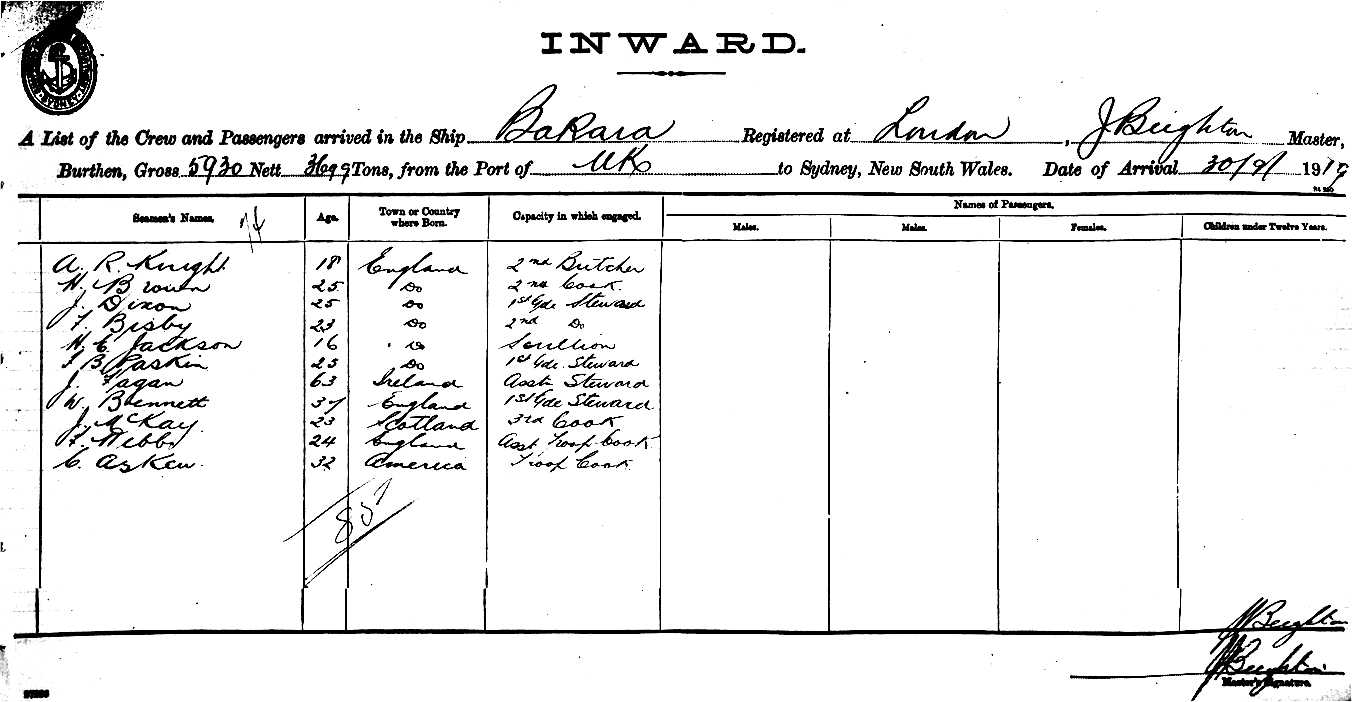 SYDNEY
INWARD.
A List of the Crew and Passengers arrived in the Ship BaKara Registered at London, J Beighton Master,
Burthen, Gross 5930 Nett Tons, from the Port of UK to Sydney, New South Wales. Date of Arrival 30/9/ 1919
Seamen's Names. Age. Town or Country where Born. Capacity in which engaged. Names of Passengers.
Males. Males. Females. Children under Twelve Years.
A. R. Knight 18 England 2nd Butcher
H. Brown 25 Do 2nd Cook.
J. Dixon 25 Do 1st Gde Steward
F. Bisby 23 Do 2nd Do
H. C. Jackson 16 Do Scullion
F B Paskin 25 Do 1st Gde. Steward
J. Fagan 63 Ireland Asst. Steward
W. Bennett 37 England 1st Gde Steward
J. McKay 23 Scotland 3rd Cook
F. Webb 24 England Asst. Troop Cook.
C. Askew. 32 America Troop Cook.
85
J Beighton
J Beighton
Master's Signature.